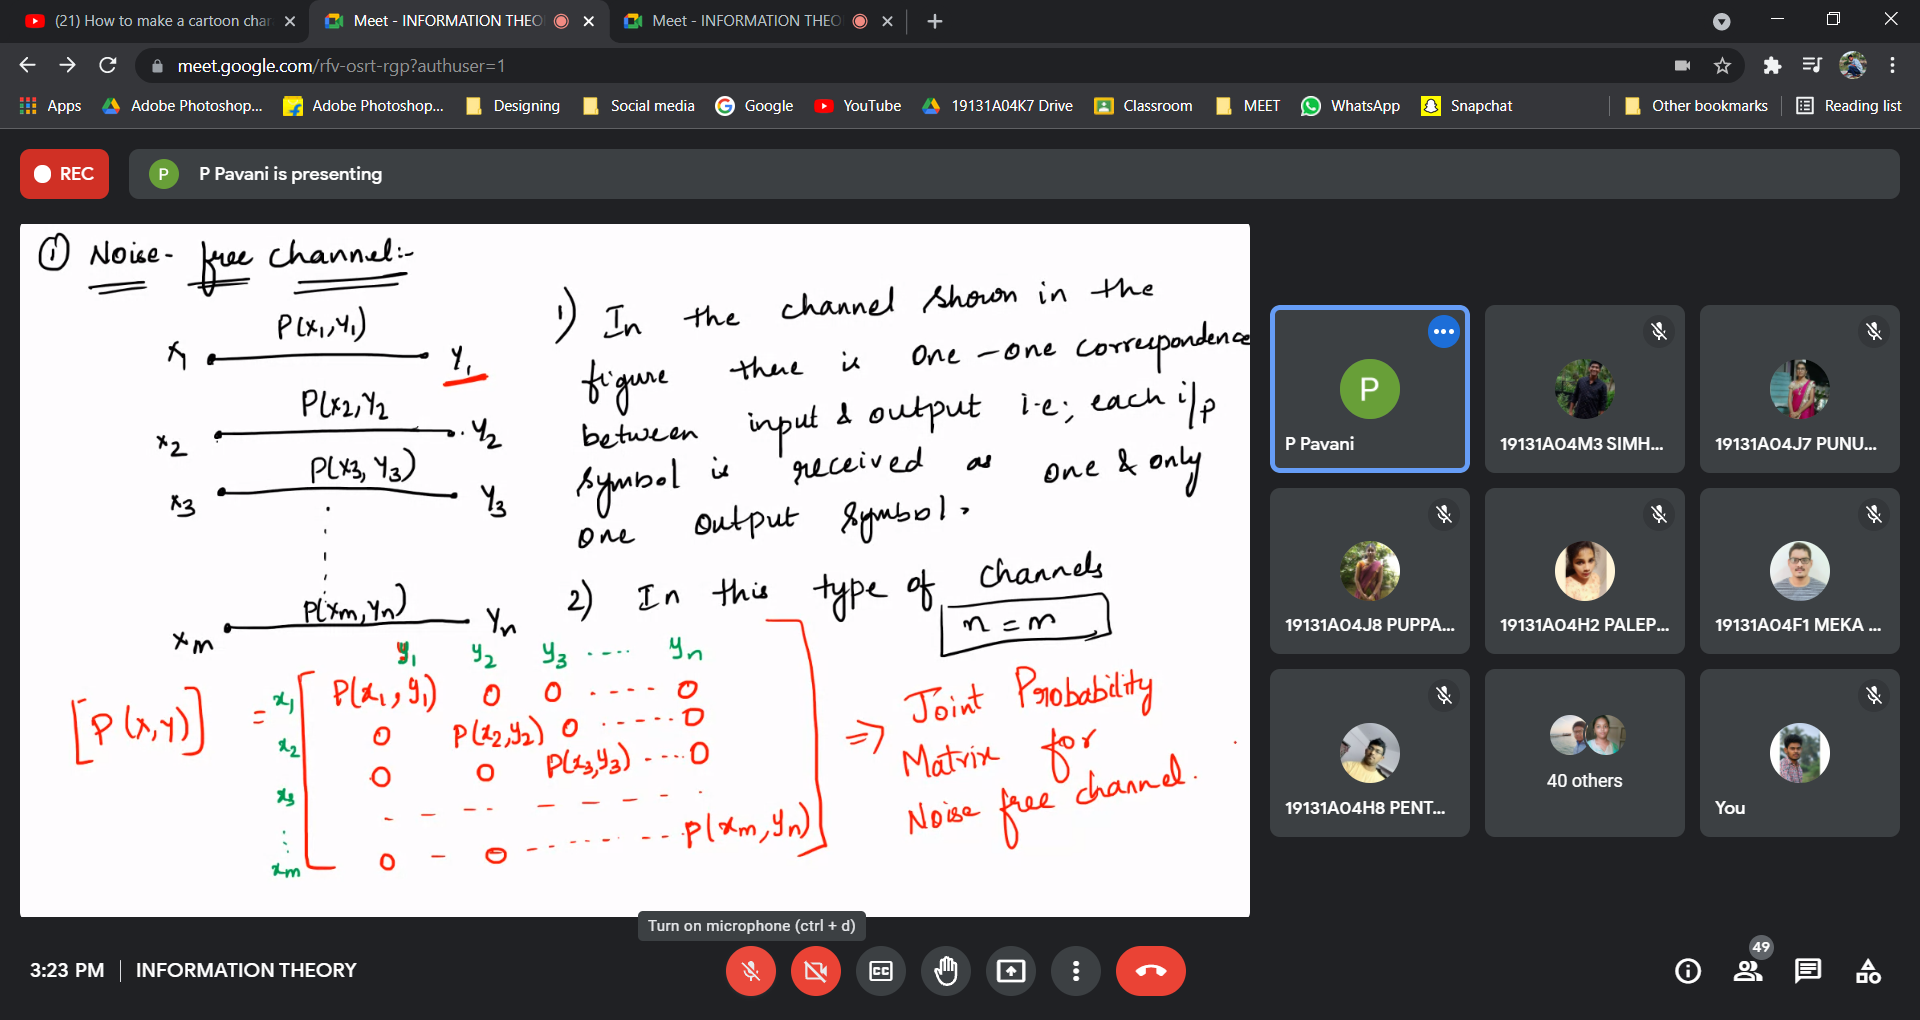 (21) How to make a cartoon char
Meet - INFORMATION THEO
Meet - INFORMATION THEO
meet.google.com/rfv-osrt-rgp?authuser=1
Apps
Adobe Photoshop...
Adobe Photoshop...
Designing
Social media
Google
YouTube
19131A04K7 Drive
Classroom
MEET
WhatsApp
Snapchat
Other bookmarks
Reading list
REC
P
P Pavani is presenting
① Noise-free channel:-
P(x₁,y₁)
x₁ y₁
P(x₂,y₂
x₂ y₂
P(x₃, y₃)
x₃ y₃
P(xm,yn)
xm yn
1) In the channel shown in the
figure there is one-one correspondence
between input & output i.e; each i/p
symbol is received as one & only
one output symbol.
2) In this type of channels
n = m
y₁ y₂ y₃ .... yn
[P(x,y)] =
x₁ P(x₁,y₁) 0 0 .... 0
x₂ 0 P(x₂,y₂) 0 ..... 0
x₃ 0 0 P(x₃,y₃) .... 0
xm 0 - 0 ........ P(xm,yn)
=> Joint Probability
Matrix for
Noise free channel.
P
P Pavani
19131A04M3 SIMH...
19131A04J7 PUNU...
19131A04J8 PUPPA...
19131A04H2 PALEP...
19131A04F1 MEKA ...
19131A04H8 PENT...
40 others
You
Turn on microphone (ctrl + d)
3:23 PM | INFORMATION THEORY
CC
49